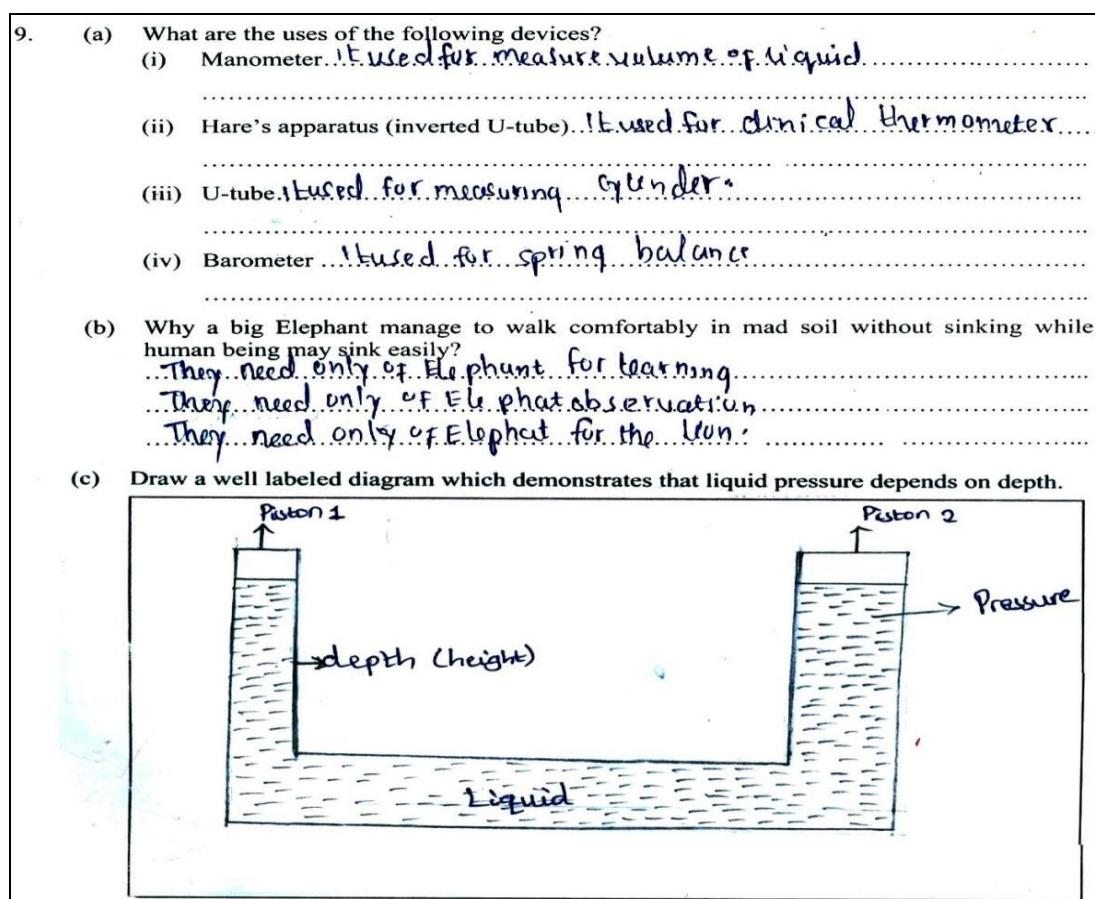 9. (a) What are the uses of the following devices?
(i) Manometer It used for measure volume of liquid
(ii) Hare's apparatus (inverted U-tube) It used for clinical thermometer
(iii) U-tube It used for measuring cylinder.
(iv) Barometer It used for spring balance
(b) Why a big Elephant manage to walk comfortably in mad soil without sinking while
human being may sink easily?
They need only of Elephant for learning
They need only of Elephat observation
They need only of Elephat for the
(c) Draw a well labeled diagram which demonstrates that liquid pressure depends on depth.
Piston 1
Piston 2
Pressure
depth (height)
Liquid